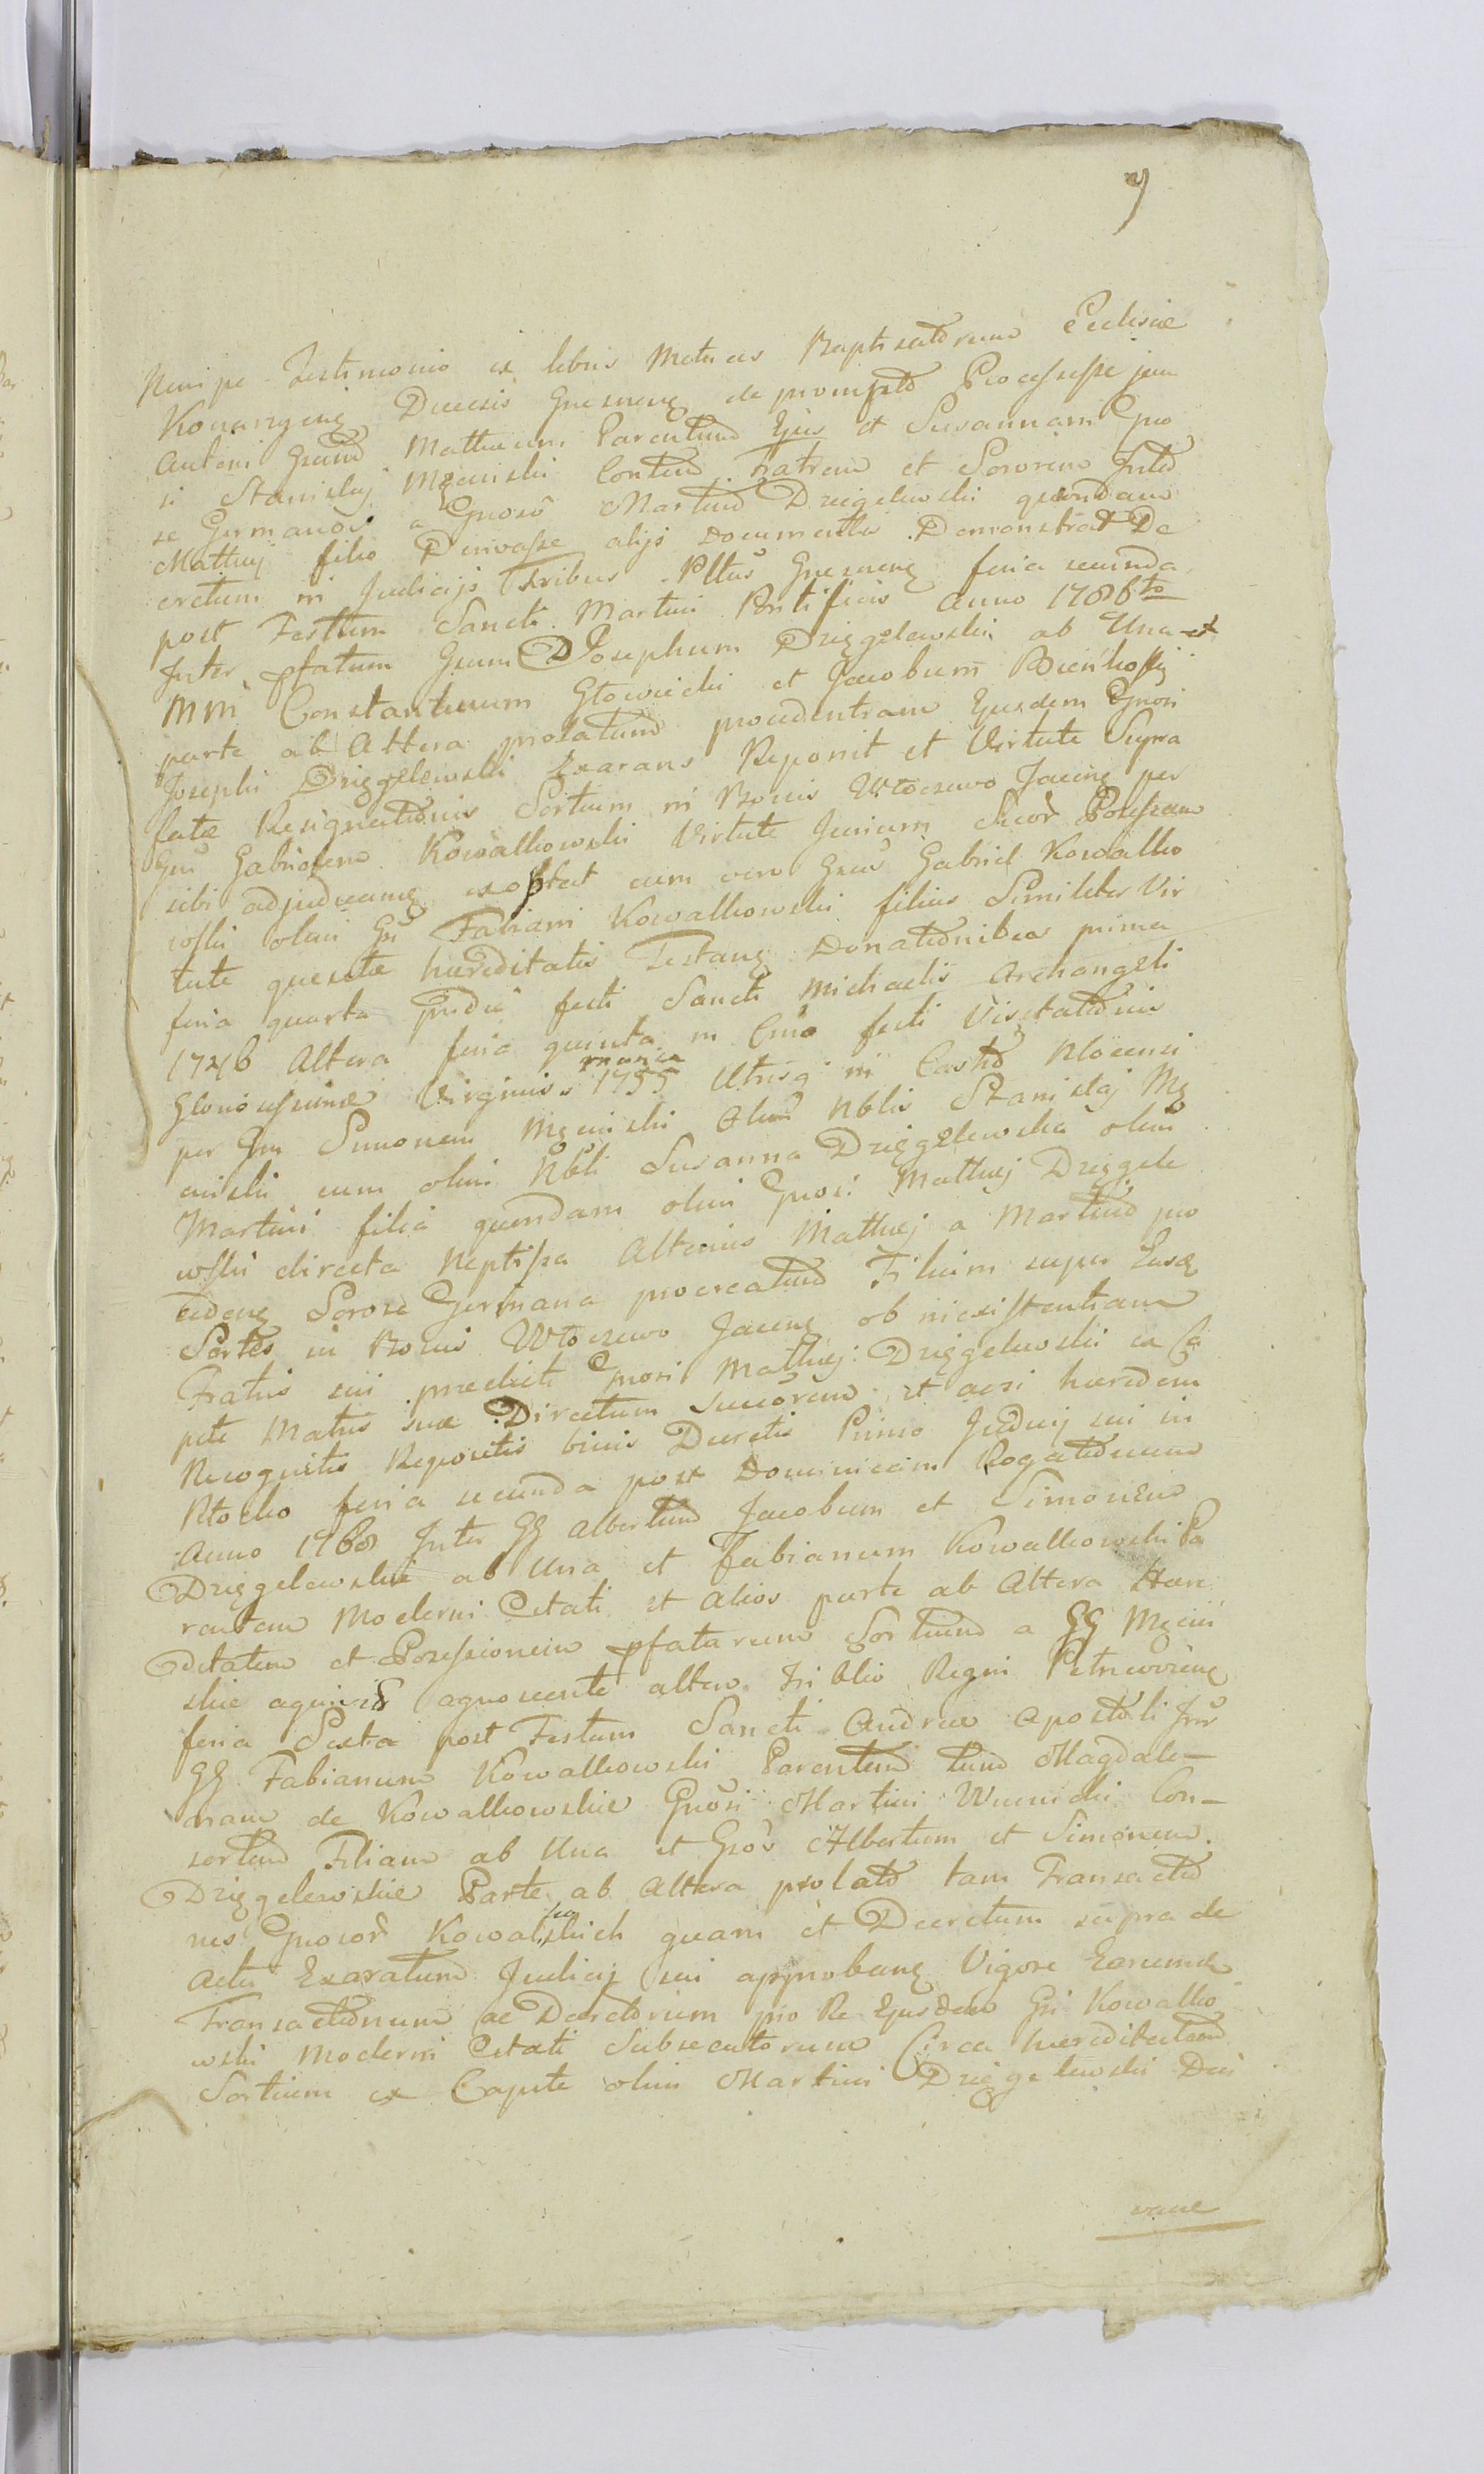 9
Nempe Testimonio ex libris Metrices Baptisatorum Ecclesiae
Konarzyeng Diecesis Gnesneng de prompto Processisse jam
Antoni Grund Mathaeum Parentund Ejus et Susannam Gno
si Stanislaj Męcinski Contem Fratrem et Sororem Inter
se Germanos a Gnoso Martino Dzięgelewski quondam
Matthej filio Derivasse alijs documentis Demonstrat De
cretum in Judicijs Tribus Pltus Gnesneng feria secunda
post Festum Sancti Martini Pontificis Anno 1786to
Inter pfatum Gsum Josephum Dzięgelewski ab Una et
MM Constantinum Głowicki et Jacobum Bieńkoski
parte ab Altera prolatum procedentiam Ejusdem Gnosi
Josephi Dzięgelewski Exarans Reponit et Virtute Supra
fatae Resignationis Sortium in Bonis Włoczewo Jaceng per
Gsu Gabrielem Kowalkowski Virtute Jurium Suor Possessam
sibi adjudicang exoptat cum vero Gsus Gabriel Kowalko
wski olim Gsi Fabiani Kowalkowski filius Similiter Vir
tute quesitae haereditatis Testang Donationibus prima
feria quarta Pridie festi Sancti Michaelis Archangeli
1746 Altera feria quinta in Crno festi Visitationis
Gloriosissimae Virginis Maria 1755 Utrisq in Castro Plocensi
per Gsm Simonem Męcinski Olim Nblis Stanislaj Mę
cinski cum olim Nbli Susanna Dzięgelewska olim
Martini filia quondam olim Gnosi Matthej Dzięgele
wski directa Neptissa Alterius Matthej a Martino pro
cedeng Sorore Germana procreatum Filium super Easd
Sortes in Bonis Włoczewo Jaceng ob inexistentiam
Fratris sui praedicti Gnosi Matthej Dzięgelewski ex Ca
pite Matris suae Directum Succorem et acsi haeredem
Recognitis Repositis binis Decretis Primo Judicij sui in
Płocko feria secunda post Dominicam Rogationum
Anno 1768 Inter GG Albertum Jacobum et Simonem
Dzięgelewskie ab Una et Fabianum Kowalkowski Pa
rentem Moderni Citati et Alios parte ab Altera Haere
ditatem et Possessionem pfatarum Sortium a GG Męcin
skie agnoscente altero Triblio Regni Petricoviens
feria Sexta post Festum Sancti Andreae Apostoli Inter
GG Fabianum Kowalkowski Parentem tum Magdale-
nam de Kowalkowskie Gnosi Martini Winnicki Con-
sortem Filiam ab Una et Gsos Albertum et Simonem
Dzięgelewskie Parte ab Altera prolato tam Transactio
nes Gnosor Kowalkoskich quam et Decretum supra de
Actu Exaratum Judicij sui approbang Vigore Earumd
Transactionum ac Decretorum pro Re Ejusdem Gsi Kowalko
wski Moderni Citati Subsecutorum Circa haereditatem
Sortium ex Capite olim Martini Dzięgelewski Deri
vane